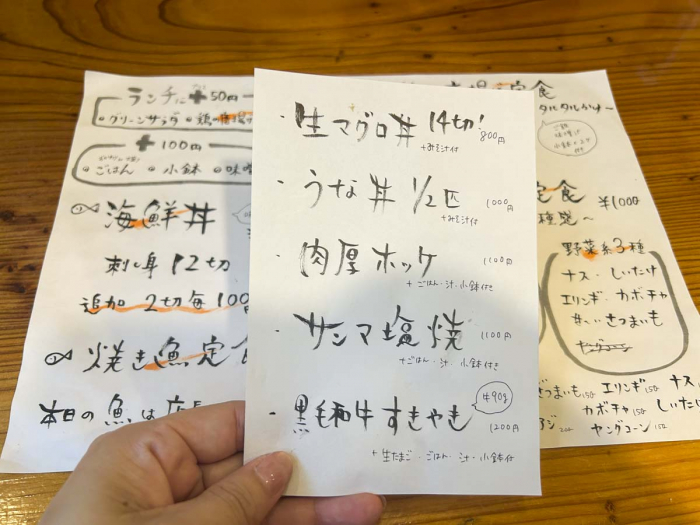 ランチに+50円
・グリーンサラダ
+100円
・ごはん ・小鉢
海鮮丼
刺し身12切
追加 2切毎100
焼き魚定食
本日の魚は
・生マグロ丼 14切! 800円
+みそ汁付
・うな丼 1/2匹 1000円
+みそ汁付
・肉厚ホッケ 1100円
+ごはん・汁・小鉢付き
・サンマ塩焼 1100円
+ごはん・汁・小鉢付き
・黒毛和牛すきやき 牛90g 1200円
+生たまご・ごはん・汁・小鉢付
定食
タルタルかけ〜
定食 ¥1000
野菜系3種
ナス・しいたけ
エリンギ・カボチャ
さつまいも
さつまいも150 エリンギ150 ナス
カボチャ150 しいたけ
ヤングコーン150